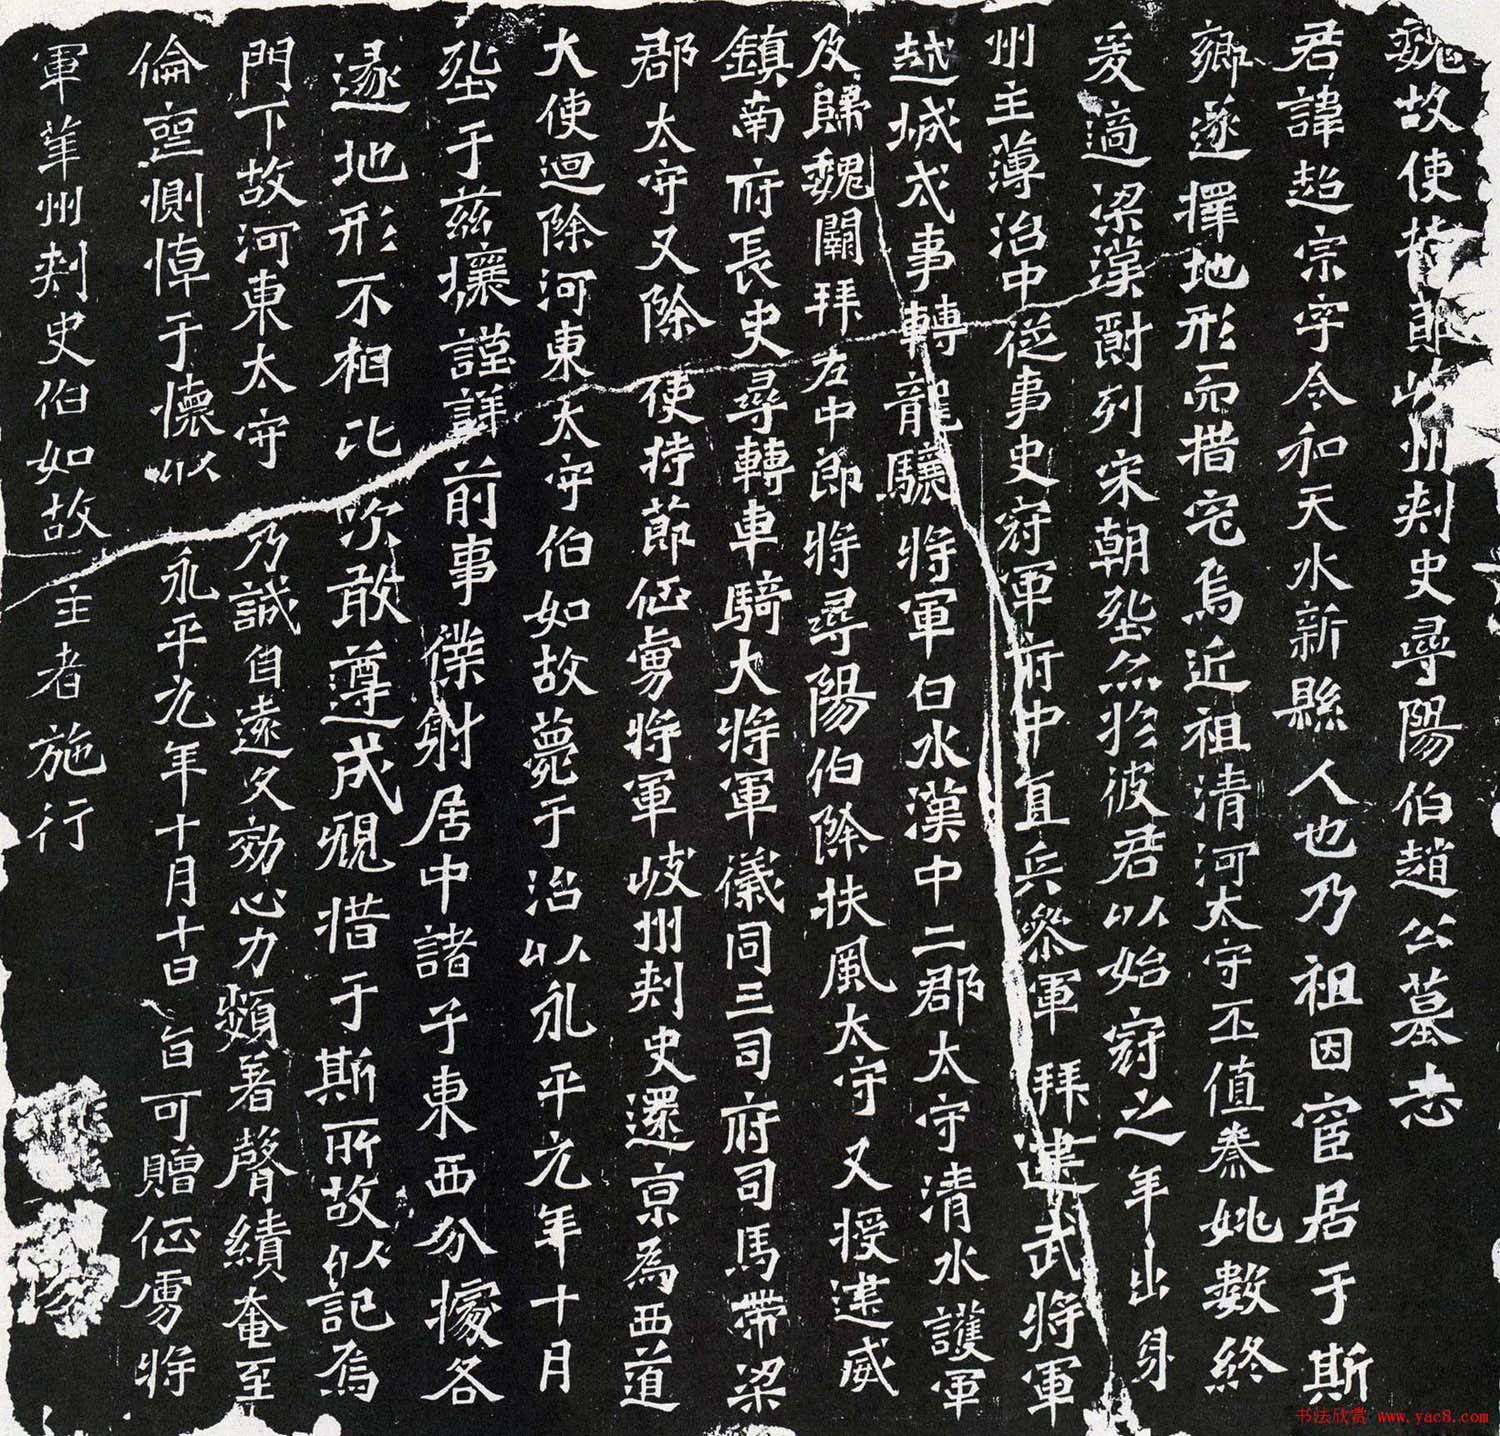 魏故使持節岐州刺史尋陽伯趙公墓志
君諱超宗字令和天水新縣人也乃祖因宦居于斯
鄉遂擇地形而措宅焉近祖清河太守丕值秦姚數終
爰適梁漢爵列宋朝墜於彼君以始冠之年出身
州主薄治中從事史冠軍府中直兵參軍拜建武將軍
越城戍事轉龍驤將軍白水漢中二郡太守清水護軍
及歸魏闕拜左中郎將尋陽伯除扶風太守又授建威
鎮南府長史尋轉車騎大將軍儀同三司府司馬帶梁
郡太守又除使持節征虜將軍岐州刺史還京為西道
大使迴除河東太守伯如故薨于治以永平元年十月
墜于茲壤謹詳前事僕射居中諸子東西分據各
遂地形不相比次敢遵成規措于斯所故以記焉
門下故河東太守乃誠自遠久効心力頻著聲績奄至
倫喪惻悼于懷以永平元年十月十日旨可贈征虜將
軍華州刺史伯如故主者施行
书法欣赏 www.yac8.com